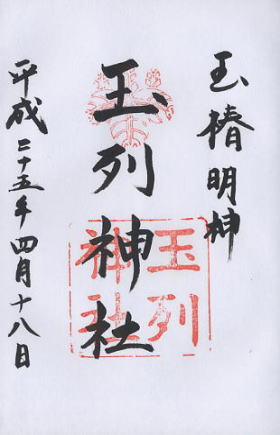 玉椿明神
玉列神社
玉列
神社
平成二十五年四月十八日